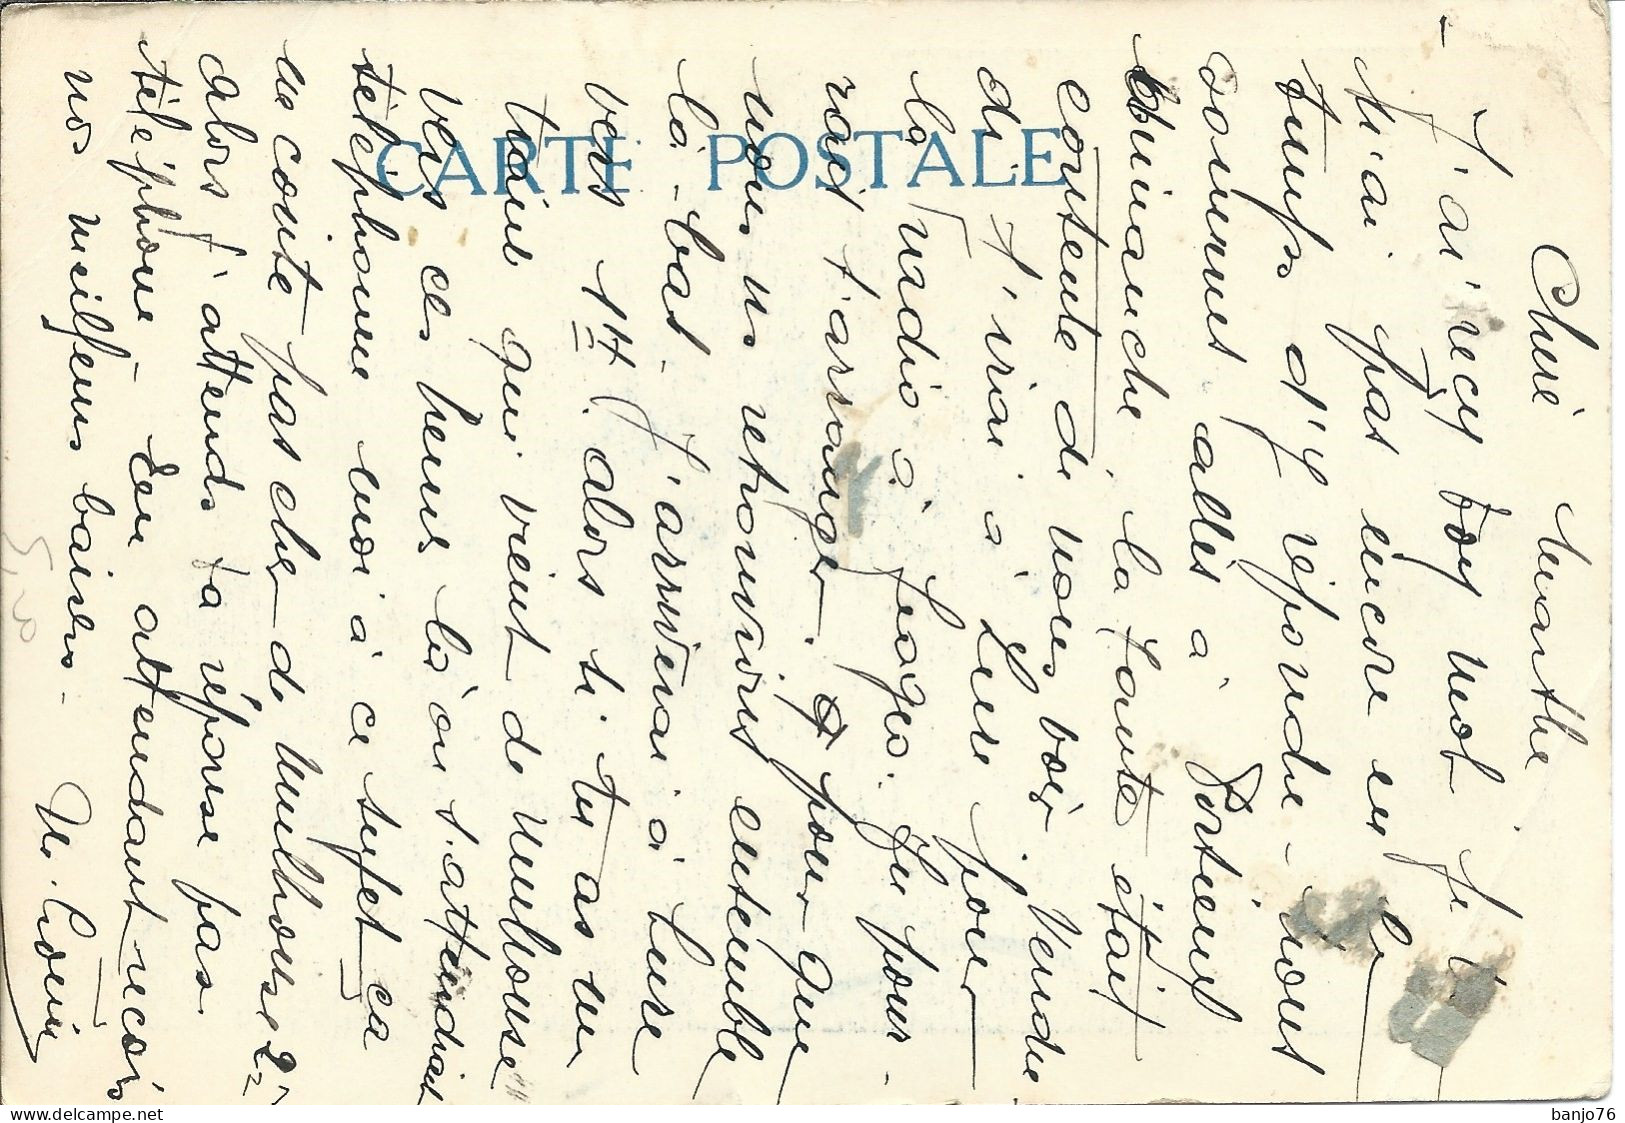 CARTE POSTALE
Chère Marthe
J'ai reçu ton mot je
n'ai pas encore eu le
temps d'y répondre - nous
sommes allés à
dimanche la tante était
contente de nous voir. Vendre
di j'irai à Lure pour
la radio à Jeages. Tu pour-
rais t'arranger. pour que
nous ns retrouvions ensemble
là-bas. J'arriverai à Lure
vers 11H. alors si tu as un
train qui vient de Mulhouse
vers ces heures là on s.attendrait
téléphone moi à ce sujet ça
ne coute pas cher de Mulhouse
alors j'attends ta réponse par
téléphone - En attendant reçois
nos meilleurs baisers.
5,00
banjo76